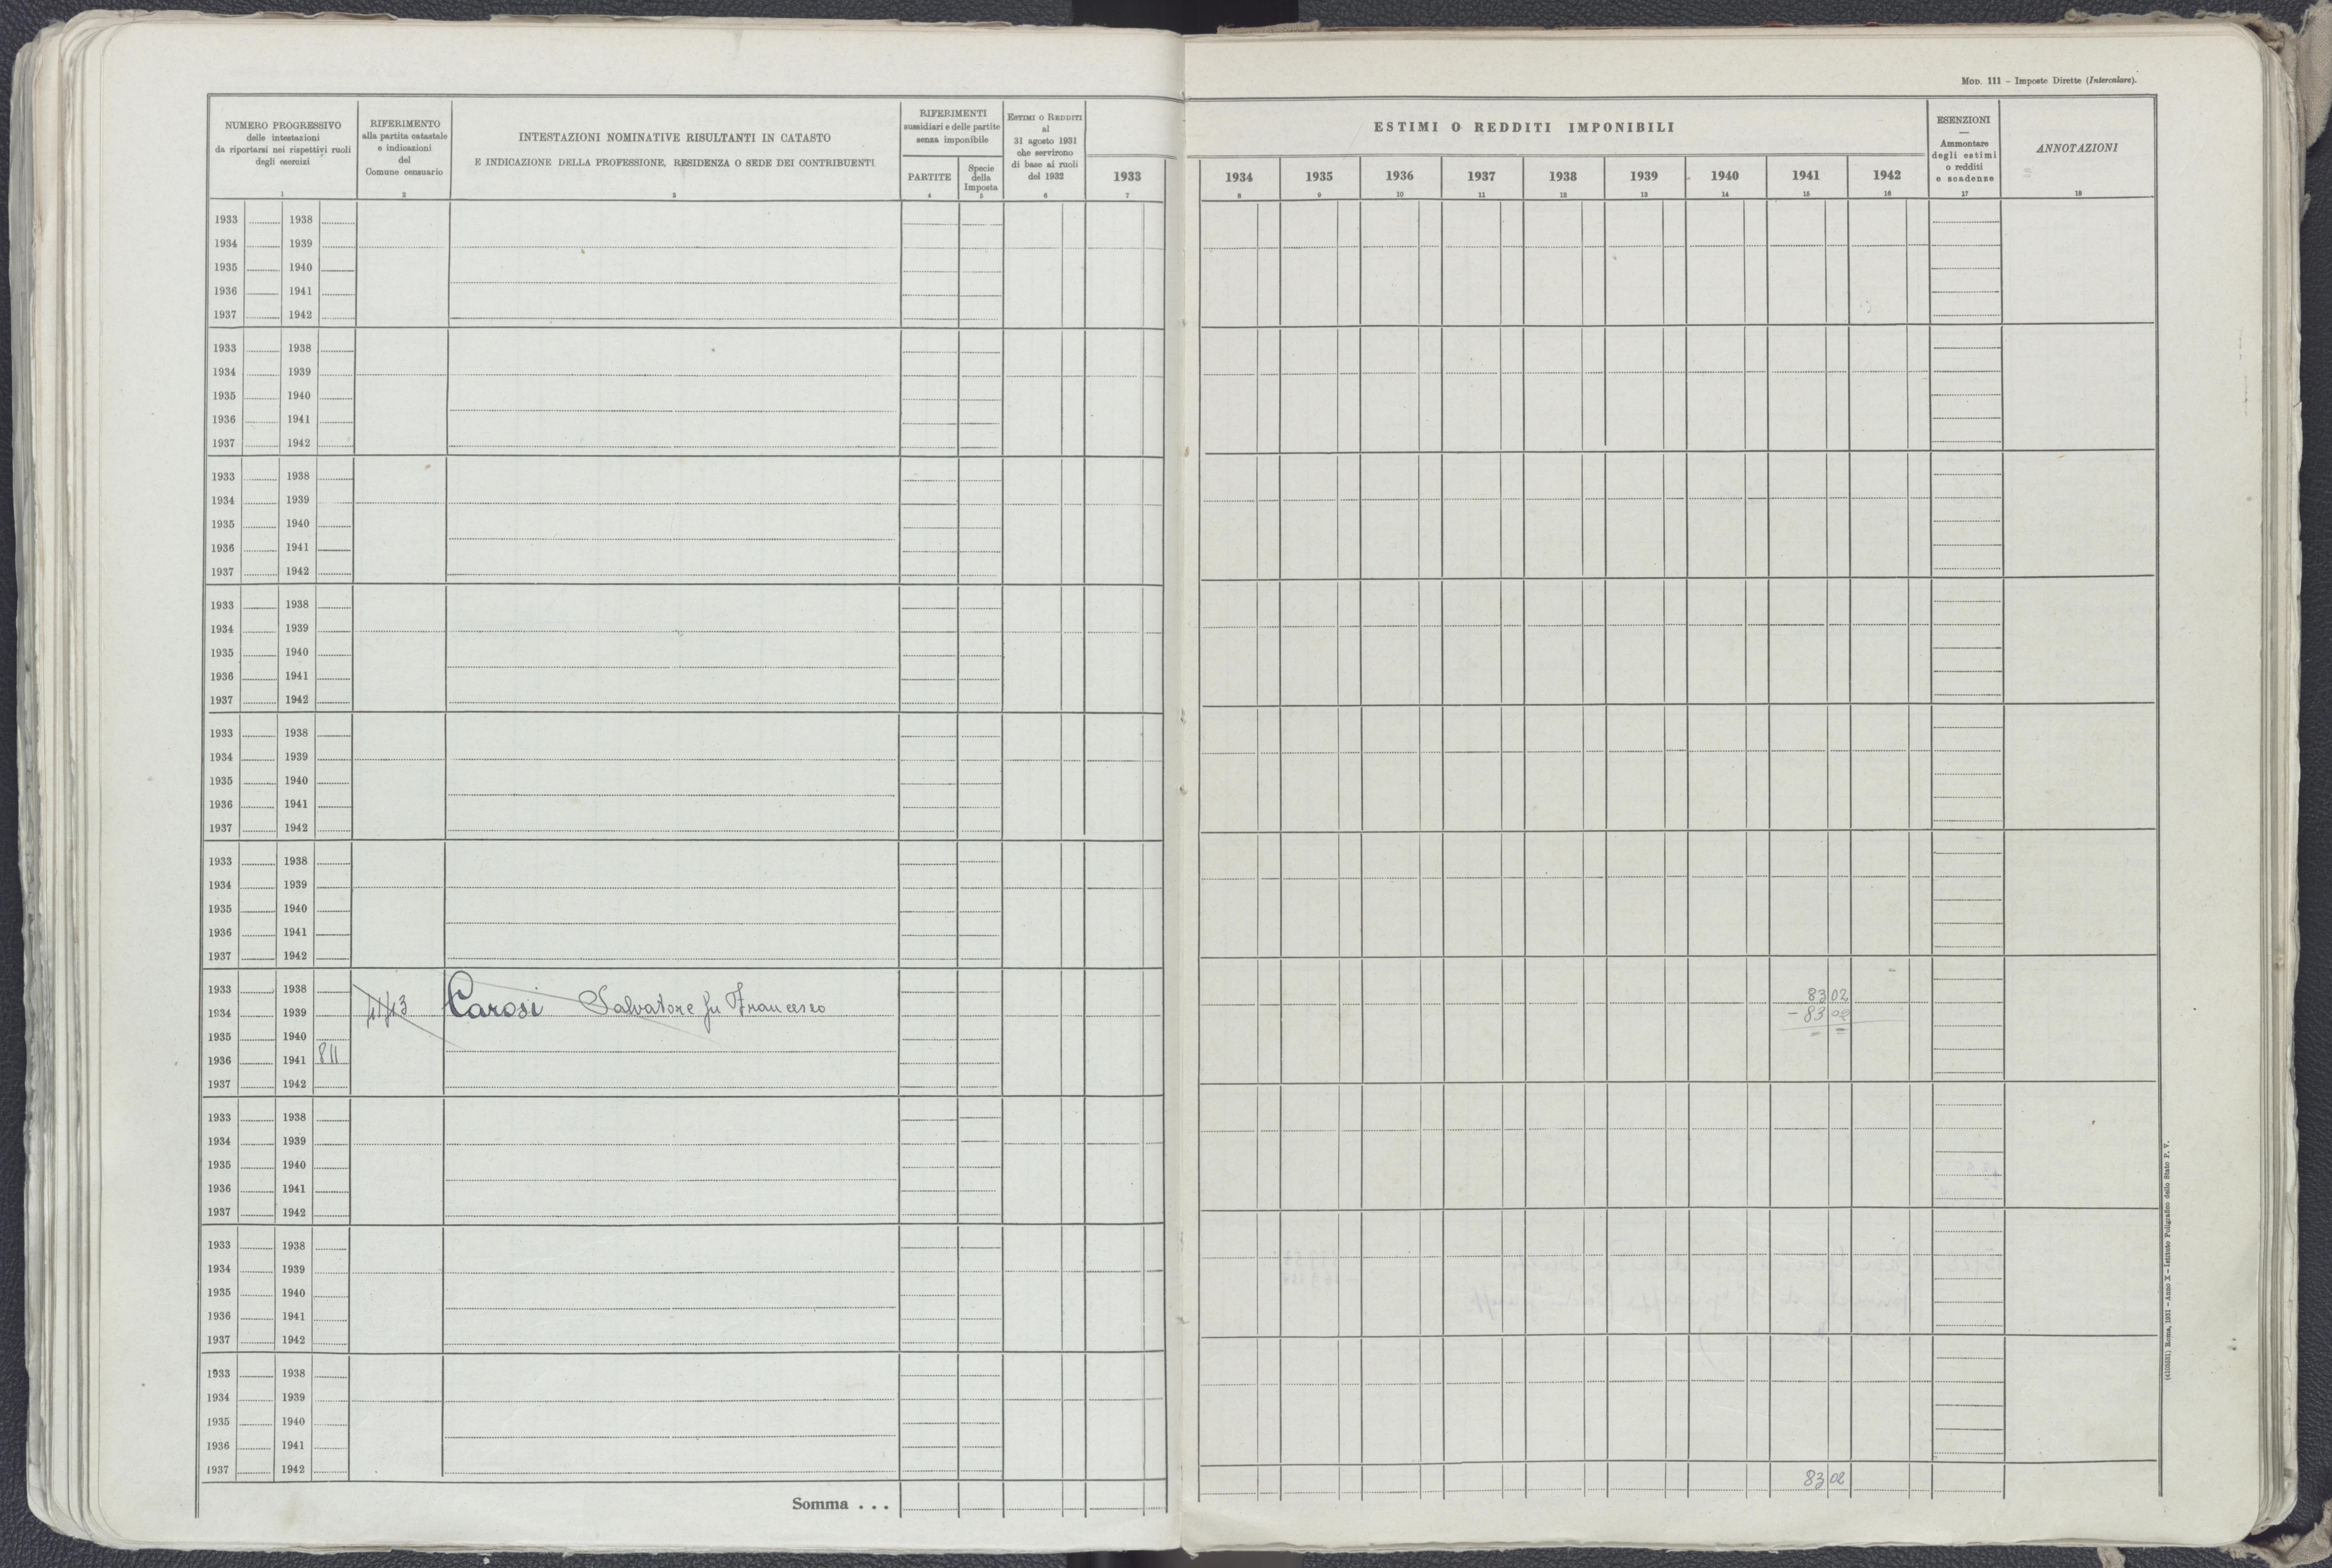 Mod. 111 – Imposte Dirette (Intercalare).
NUMERO PROGRESSIVO
delle intestazioni
da riportarsi nei rispettivi ruoli
degli esercizi
1
RIFERIMENTO
alla partita catastale
e indicazioni
del
Comune censuario
2
INTESTAZIONI NOMINATIVE RISULTANTI IN CATASTO
E INDICAZIONE DELLA PROFESSIONE, RESIDENZA O SEDE DEI CONTRIBUENTI
3
RIFERIMENTI
sussidiari e delle partite
senza imponibile
PARTITE
4
Specie
della
Imposta
5
Estimi o Redditi
al
31 agosto 1931
che servirono
di base ai ruoli
del 1932
6
1933
7
ESTIMI O REDDITI IMPONIBILI
1934 1935 1936 1937 1938 1939 1940 1941 1942
8 9 10 11 12 13 14 15 16
ESENZIONI
—
Ammontare
degli estimi
o redditi
e scadenze
17
ANNOTAZIONI
18
1933 1938
1934 1939
1935 1940
1936 1941
1937 1942
1933 1938
1934 1939
1935 1940
1936 1941
1937 1942
1933 1938
1934 1939
1935 1940
1936 1941
1937 1942
1933 1938
1934 1939
1935 1940
1936 1941
1937 1942
1933 1938
1934 1939
1935 1940
1936 1941
1937 1942
1933 1938
1934 1939
1935 1940
1936 1941
1937 1942
1933 1938 83 02
1934 1939 Carosi Salvatore fu Francesco – 83 02
1935 1940 = =
1936 1941 811
1937 1942
1933 1938
1934 1939
1935 1940
1936 1941
1937 1942
1933 1938
1934 1939
1935 1940
1936 1941
1937 1942
1933 1938
1934 1939
1935 1940
1936 1941
1937 1942
Somma . . . 83 02
(4103331) Roma, 1931 – Anno X – Istituto Poligrafico dello Stato P. V.